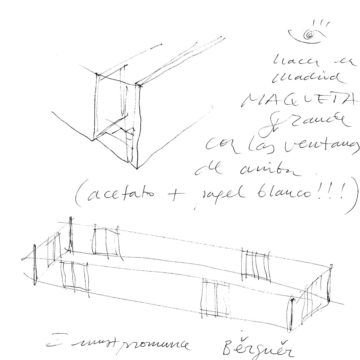 hacer en
madrid
MAQUETA
grande
con las ventanas
de arriba
(acetato + papel blanco!!!)
I must promunce Běrguěr